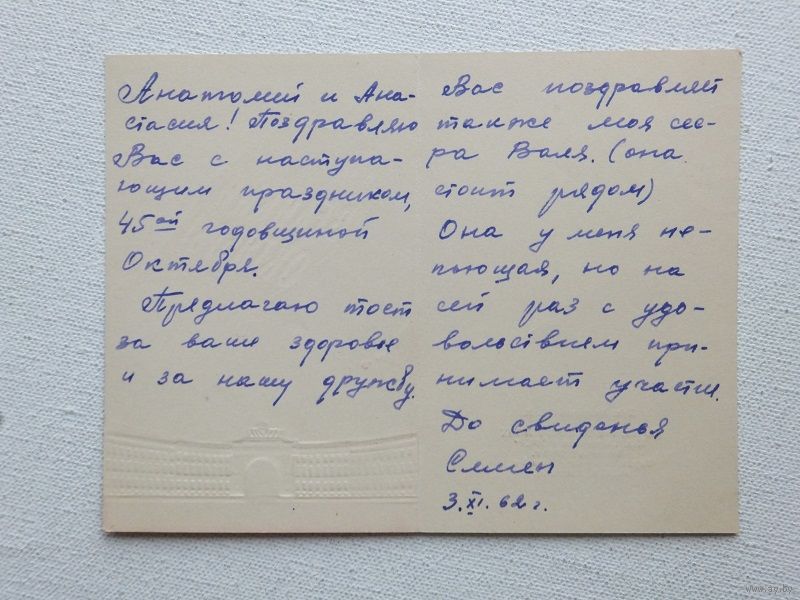 Анатолий и Ана-
стасия! Поздравляю
Вас с наступа-
ющим праздником,
45ой годовщиной
Октября.
Предлагаю тост
за ваше здоровье
и за нашу дружбу.
Вас поздравляет
также моя сес-
ра Валя. (она
стоит рядом)
Она у меня не-
пьющая, но на
сей раз с удо-
вольствием при-
нимает участие.
До свиданья
Семен
3.XI.62 г.
www.ay.by